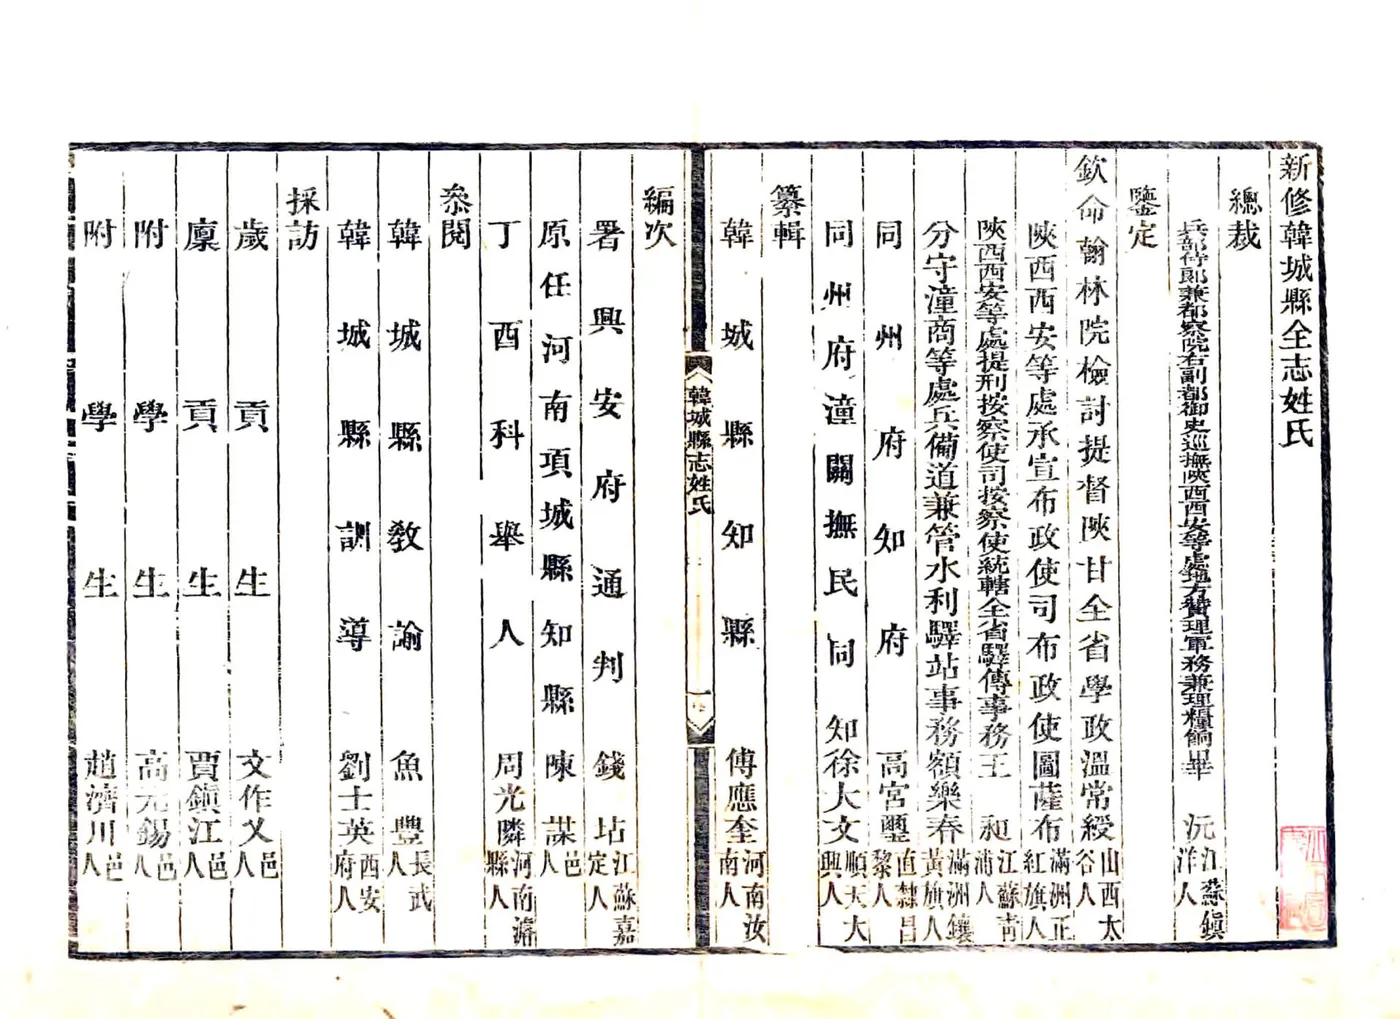 新修韓城縣全志姓氏
總裁
兵部侍郎兼都察院右副都御史巡撫陝西西安等處地方贊理軍務兼理糧餉畢沅江蘇鎮洋人
鑒定
欽命翰林院檢討提督陝甘全省學政溫常綬山西太谷人
陝西西安等處承宣布政使司布政使圖薩布滿洲正紅旗人
陝西西安等處提刑按察使司按察使統轄全省驛傳事務王昶江蘇青浦人
分守潼商等處兵備道兼管水利驛站事務額樂春滿洲鑲黃旗人
同州府知府高宮璽直隸昌黎人
同州府潼關撫民同知徐大文順天大興人
纂輯
韓城知縣傅應奎河南汝南人
韓城縣志姓氏
一
編次
署興安府通判錢坫江蘇嘉定人
原任河南項城縣知縣陳謀邑人
丁酉科舉人周光隣河南濬縣人
叅閱
韓城縣教諭魚豐長武人
韓城縣訓導劉士英西安府人
採訪
歲貢生文作乂邑人
廩貢生賈鎮江邑人
附學生高元錫邑人
附學生趙濟川邑人